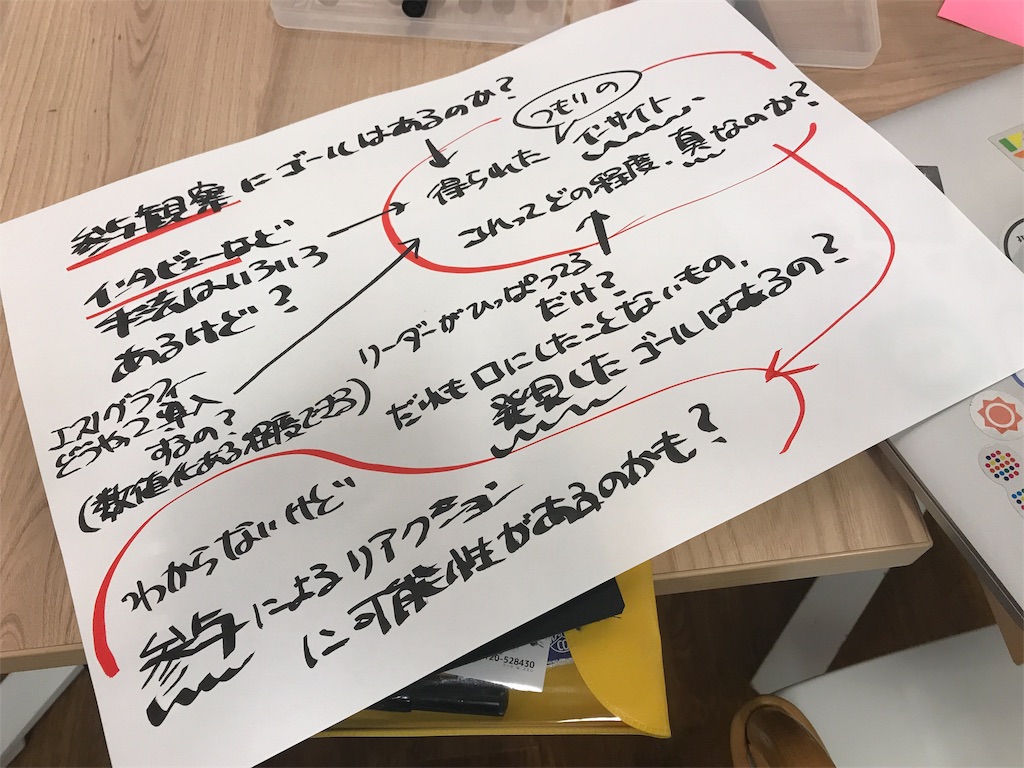 参与観察にゴールはあるのか?
インタビューなど
手法はいろいろ
あるけど?
つもりの
得られたインサイト、
これってどの程度、真なのか?
リーダーがひっぱってる
だけ?
エスノグラフィー
どうやって導入
するの?
(数値化ある程度できる)
だれも口にしたことないもの、
発見したゴールはあるの?
わからないけど
参与によるリアクション
に可能性があるのかも?
720-528430